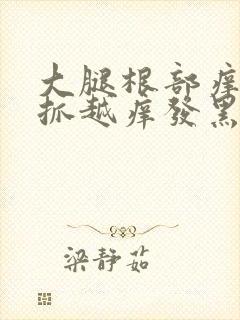 大腿根部痒
抓越痒發黑
梁静茹